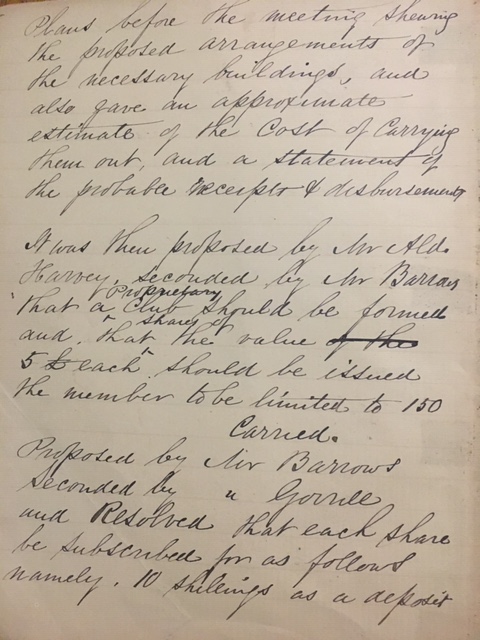 Plans before the meeting shewing
the proposed arrangements of
the necessary buildings, and
also gave an approximate
estimate of the Cost of Carrying
them out, and a statement of
the probable receipts & disbursements
It was then proposed by Mr Ald.
Harvey, seconded by Mr Barrows
Proprietary
"that a Club should be formed
shares of
and. that the value of the
5 £ each should be issued
the member to be limited to 150
Carried.
Proposed by Mr Barrows
seconded by "
and Resolved that each share
be subscribed for as follows
namely. 10 shillings as a deposit